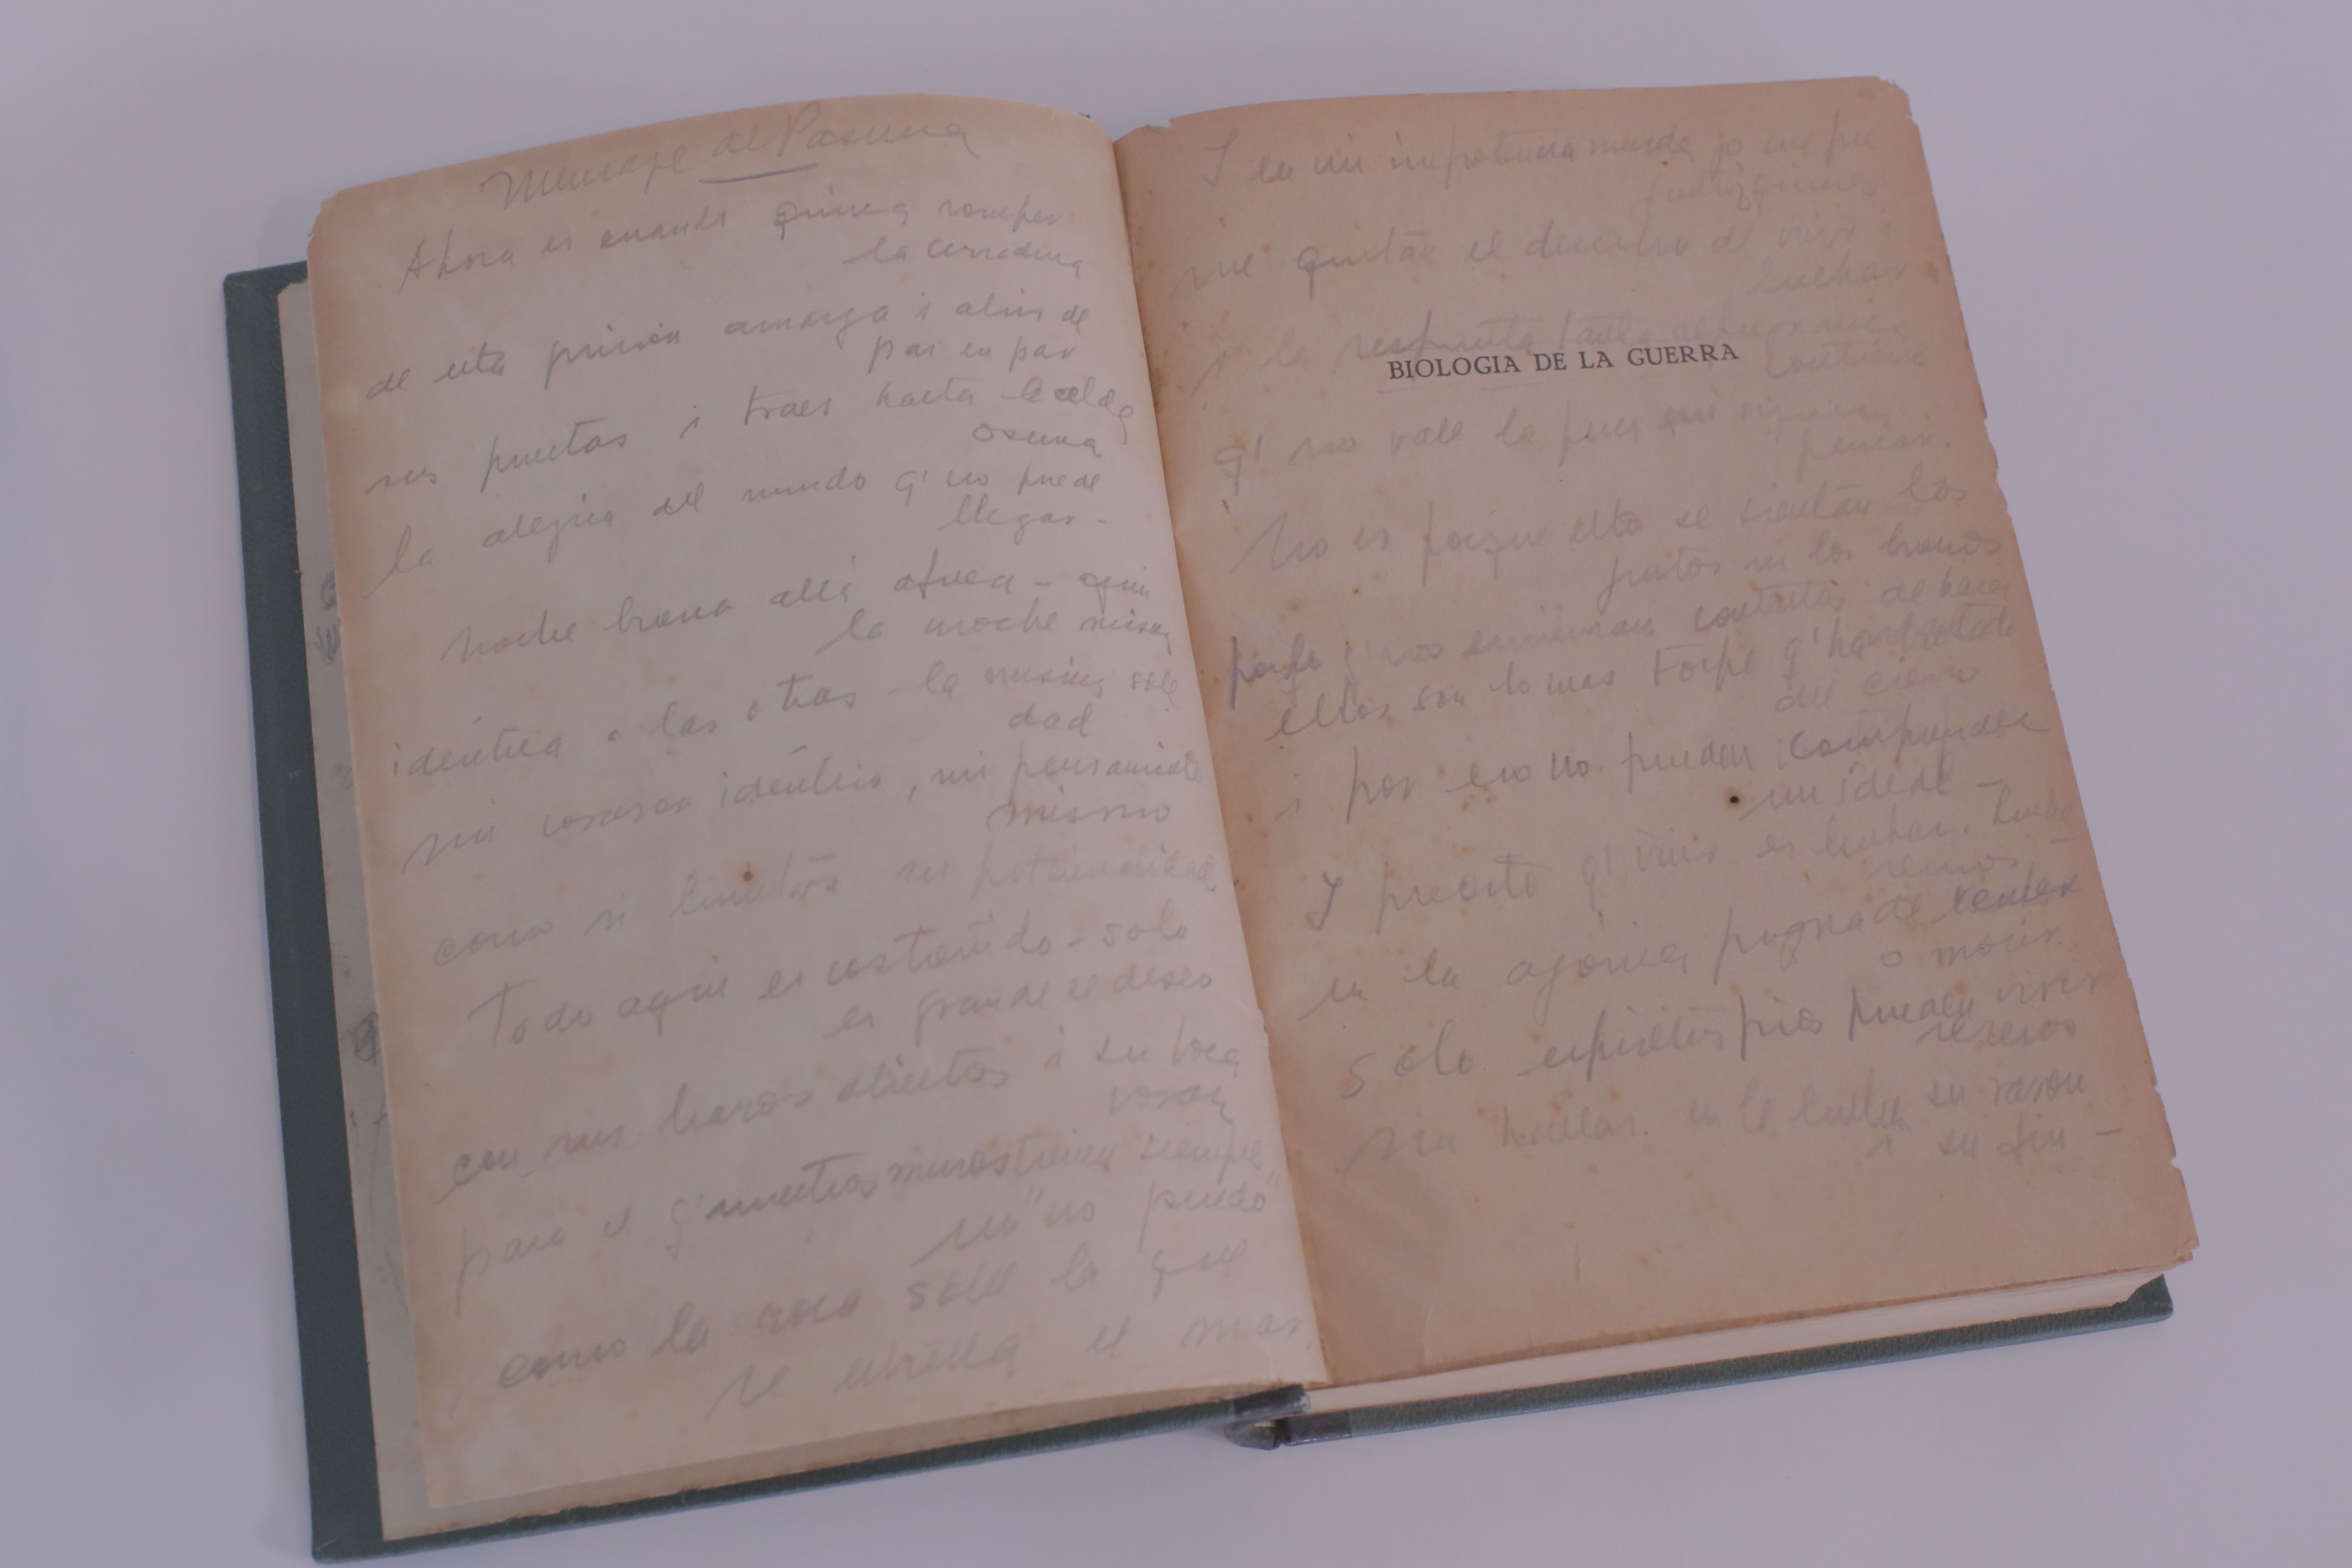 Mensaje al Pasuna
Ahora es cuando quiero romper
la cerradura
de esta prisión amarga i abrir de
par en par
sus puertas i traer hasta la celda
oscura
la alegria del mundo q' no puede
llegar -
Noche buena allá afuera - aquí
la noche misma
idéntica a las otras - la misma sole
dad
mi corazon idéntico, mi pensamiento
mismo
como si limitára su potencialidad
Todo aquí es costreñido - solo
es grande el deseo
con sus brazos abiertos i su boca
voraz
para el q' nuestros muros tienen siempre
un "no puedo"
como la roca sobre la que
se estrella el mar.
I en mi impotencia muda yo me pre
gunto quienes
me quitan el derecho de vivir i
luchar
i la respuesta tanta repugnancia
contiene
q' no vale la pena ni siquiera
pensar.
No es porque ellos se sientan los
justos ni los buenos
porqe q' nos encierran contentos de hacer
ellos son lo mas torpe q' ha brotado
del cieno
i por eso no pueden comprender
un ideal -
I presiento q' vivir es luchar. Lucha
remos -
en la agónica pugna de vencer
o morir.
Solo espiritus pueden vivir
serenos
sin hallar en la lucha su razon
i su fin -
BIOLOGIA DE LA GUERRA